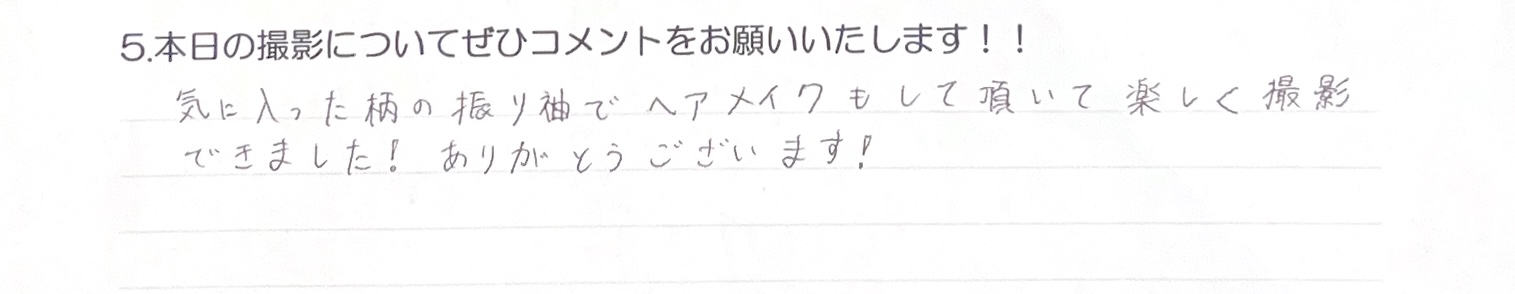 5.本日の撮影についてぜひコメントをお願いいたします！！
気に入った柄の振り袖でヘアメイクもして頂いて楽しく撮影
できました！ありがとうございます！